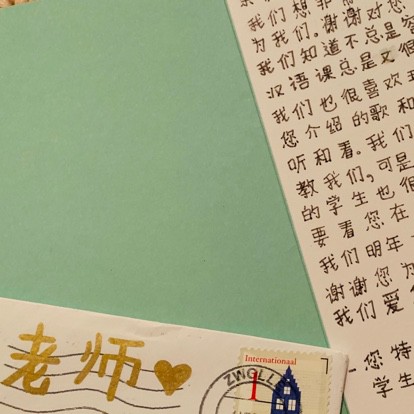 我们想非
为我们。谢谢对您
我们知道不总是容
汉语课总是很
我们也很喜欢
您介绍的歌和
听和看。我们
教我们,可是
的学生也很
要看您在
我们明年
谢谢您为
我们爱
-您特
学生
老师
Internationaal
1
ZWOLLE